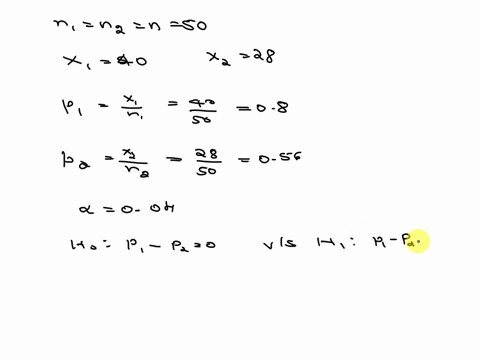 n₁ = n₂ = n = 50
x₁ = 40 x₂ = 28
p₁ = x₁/n₁ = 40/50 = 0.8
p₂ = x₂/n₂ = 28/50 = 0.56
α = 0.04
H₀: p₁ - p₂ = 0 v/s H₁: p₁ - p₂